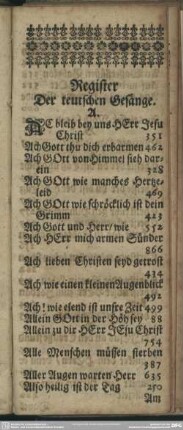 Register
Der teutschen Gesänge.
A.
ACh bleib bey uns HErr Jesu
Christ 351
Ach Gott thu dich erbarmen 462
Ach GOtt von Himmel sieh dar-
ein 328
Ach GOtt wie manches Hertze-
leid 469
Ach GOtt wie schröcklich ist dein
Grimm 423
Ach Gott und Herr/ wie 552
Ach HErr mich armen Sünder
866
Ach lieben Christen seyd getrost
434
Ach wie einen kleinen Augenblick
492
Ach! wie elend ist unsre Zeit 499
Allein GOtt in der Höh sey 88
Allein zu dir HErr JEsu Christ
754
Alle Menschen müssen sterben
387
Aller Augen warten Herr 635
Also heilig ist der Tag 250
Am